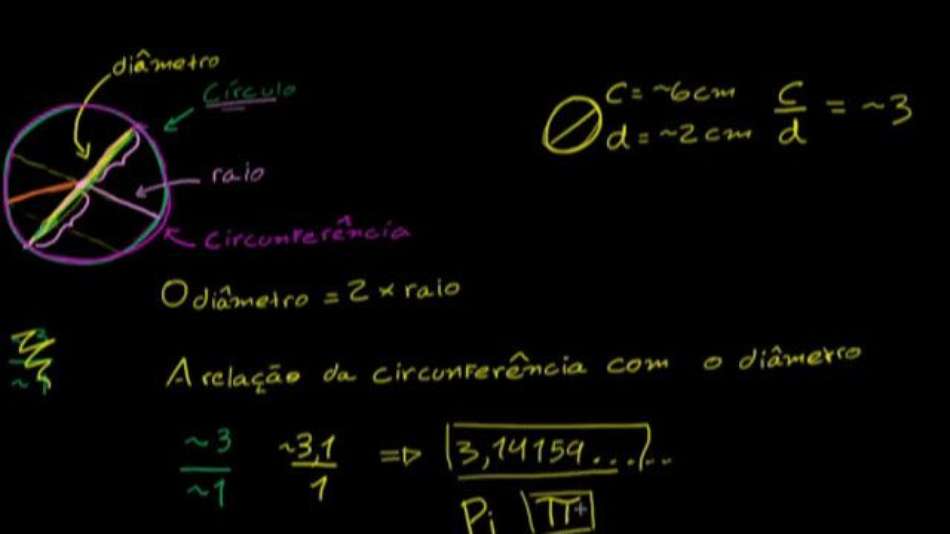 diâmetro
Círculo
raio
circunferência
C = ~6cm
d = ~2cm
C/d = ~3
O diâmetro = 2 x raio
A relação da circunferência com o diâmetro
~3/~1 ~3,1/1 => 3,14159......
Pi π